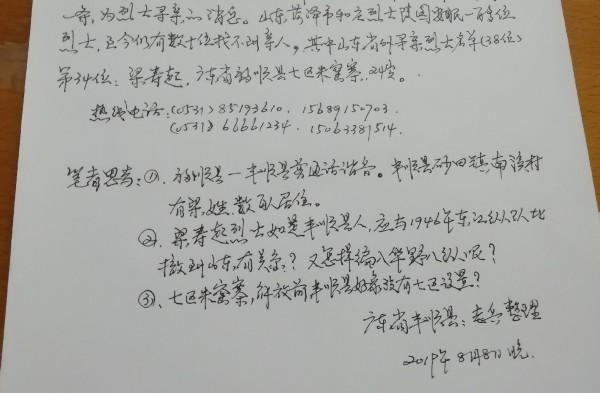 一帝，为烈士寻亲的消息。山东菏泽市和庄烈士陵园安眠一百多位
烈士，至今仍有数十位找不到亲人，其中山东省外寻亲烈士名单(38位)
第34位：梁寿起，广东省韵顺县七区朱窝寨，24岁。
热线电话：(0531)85193610．15689150703．
(0531)66661234．15063387514．
笔者思考：①、韵顺县一丰顺县普通话谐音。丰顺县砂田镇南湾村
有梁姓数百人居住。
②、梁寿起烈士如是丰顺县人，应与1946年东江纵队北
撤到山东，有关系？又怎样编入华野八纵呢？
③、七区朱窝寨，解放前丰顺县好像没有七区设置？
广东省丰顺县：志兵整理
2019年8月8日晚．